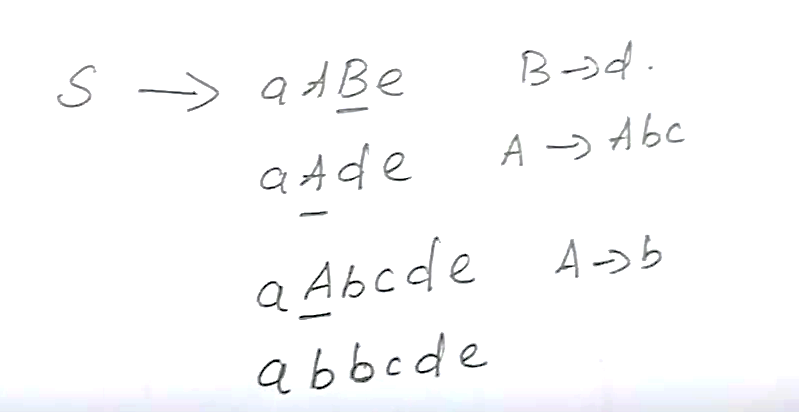 S → aABe B→d.
aAde A → Abc
aAbcde A→b
abbcde